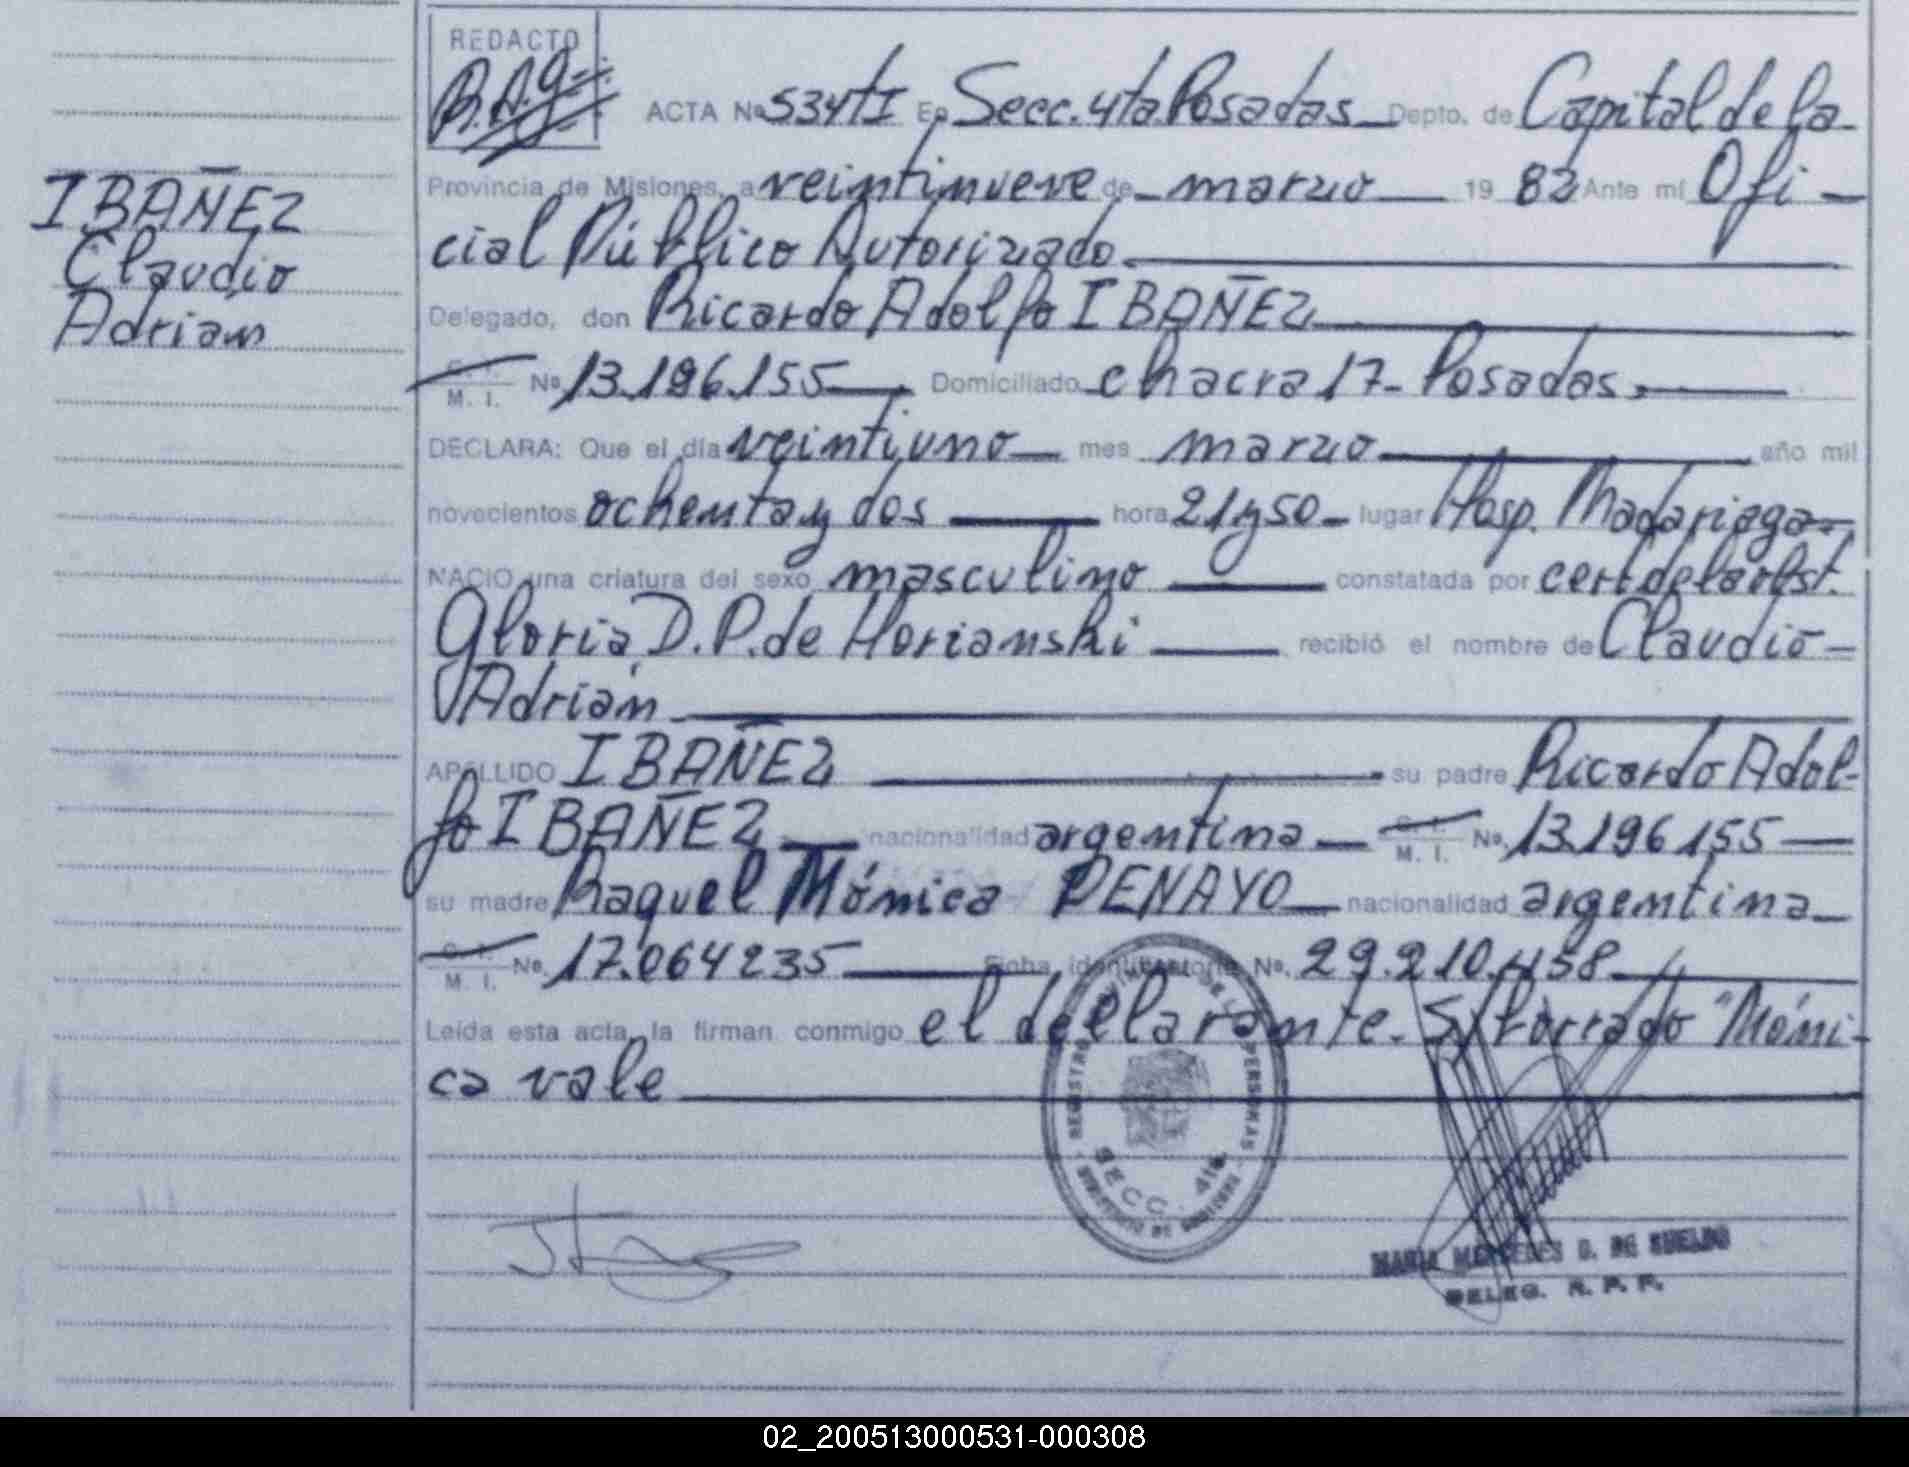 REDACTO
R.A.G.
ACTA Nº 534TI En Secc. 4ta. Posadas Depto. de Capital de la
Provincia de Misiones, a veintinueve de marzo 19 82 Ante mí Ofi-
cial Público Autorizado.
Delegado, don Ricardo Adolfo IBAÑEZ
C. I.
M. I. Nº 13.196.155 Domiciliado chacra 17- Posadas.
DECLARA: Que el día veintiuno mes marzo año mil
novecientos ochenta y dos hora 21 y 50 lugar Hosp. Madariaga
NACIO una criatura del sexo masculino constatada por cert de la obst.
Gloria D.P. de Horianski recibió el nombre de Claudio
Adrián
APELLIDO IBAÑEZ su padre Ricardo Adol-
fo IBAÑEZ nacionalidad argentina C. I. M. I. Nº 13.196.155
su madre Raquel Mónica PENAYO nacionalidad argentina
C. I. M. I. Nº 17.064235 Ficha identificatoria Nº 29.210.458
Leída esta acta, la firman conmigo el declarante. S/borrado "Móni-
ca vale
IBAÑEZ
Claudio
Adrian
REGISTRO PROVINCIAL DE LAS PERSONAS
SECC. 4ta
MARIA MERCEDES G. DE SUELDO
DELEG. R. P. P.
02_200513000531-000308